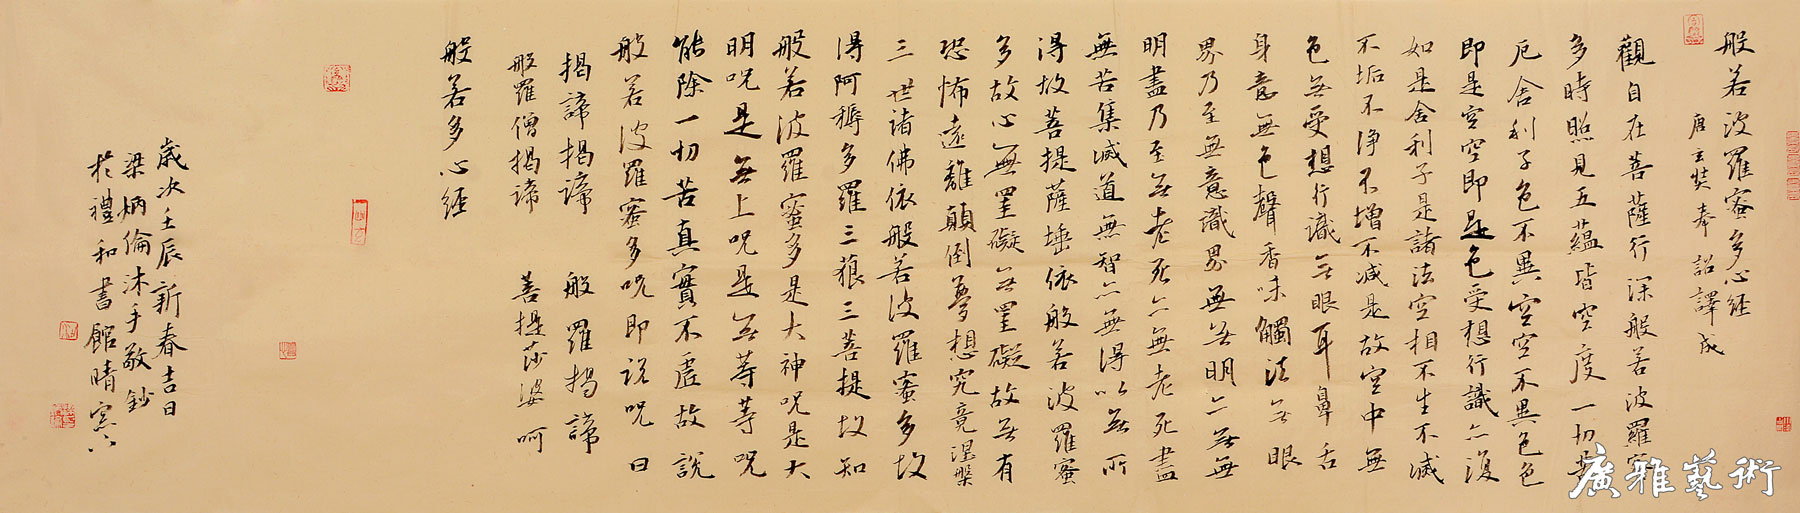 般若波羅蜜多心經
唐玄奘奉詔譯成
觀自在菩薩行深般若波羅蜜
多時照見五蘊皆空度一切苦
厄舍利子色不異空空不異色色
即是空空即是色受想行識亦復
如是舍利子是諸法空相不生不滅
不垢不淨不增不減是故空中無
色無受想行識無眼耳鼻舌
身意無色聲香味觸法無眼
界乃至無意識界無無明亦無無
明盡乃至無老死亦無老死盡
無苦集滅道無智亦無得以無所
得故菩提薩埵依般若波羅蜜
多故心無罣礙無罣礙故無有
恐怖遠離顛倒夢想究竟涅槃
三世諸佛依般若波羅蜜多故
得阿耨多羅三藐三菩提故知
般若波羅蜜多是大神呪是大
明呪是無上呪是無等等呪
能除一切苦真實不虛故說
般若波羅蜜多呪即說呪曰
揭諦揭諦 般羅揭諦
般羅僧揭諦 菩提莎婆呵
般若多心經
歲次壬辰新春吉日
梁炳倫沐手敬鈔
於禮和書館晴窗下
廣雅藝術